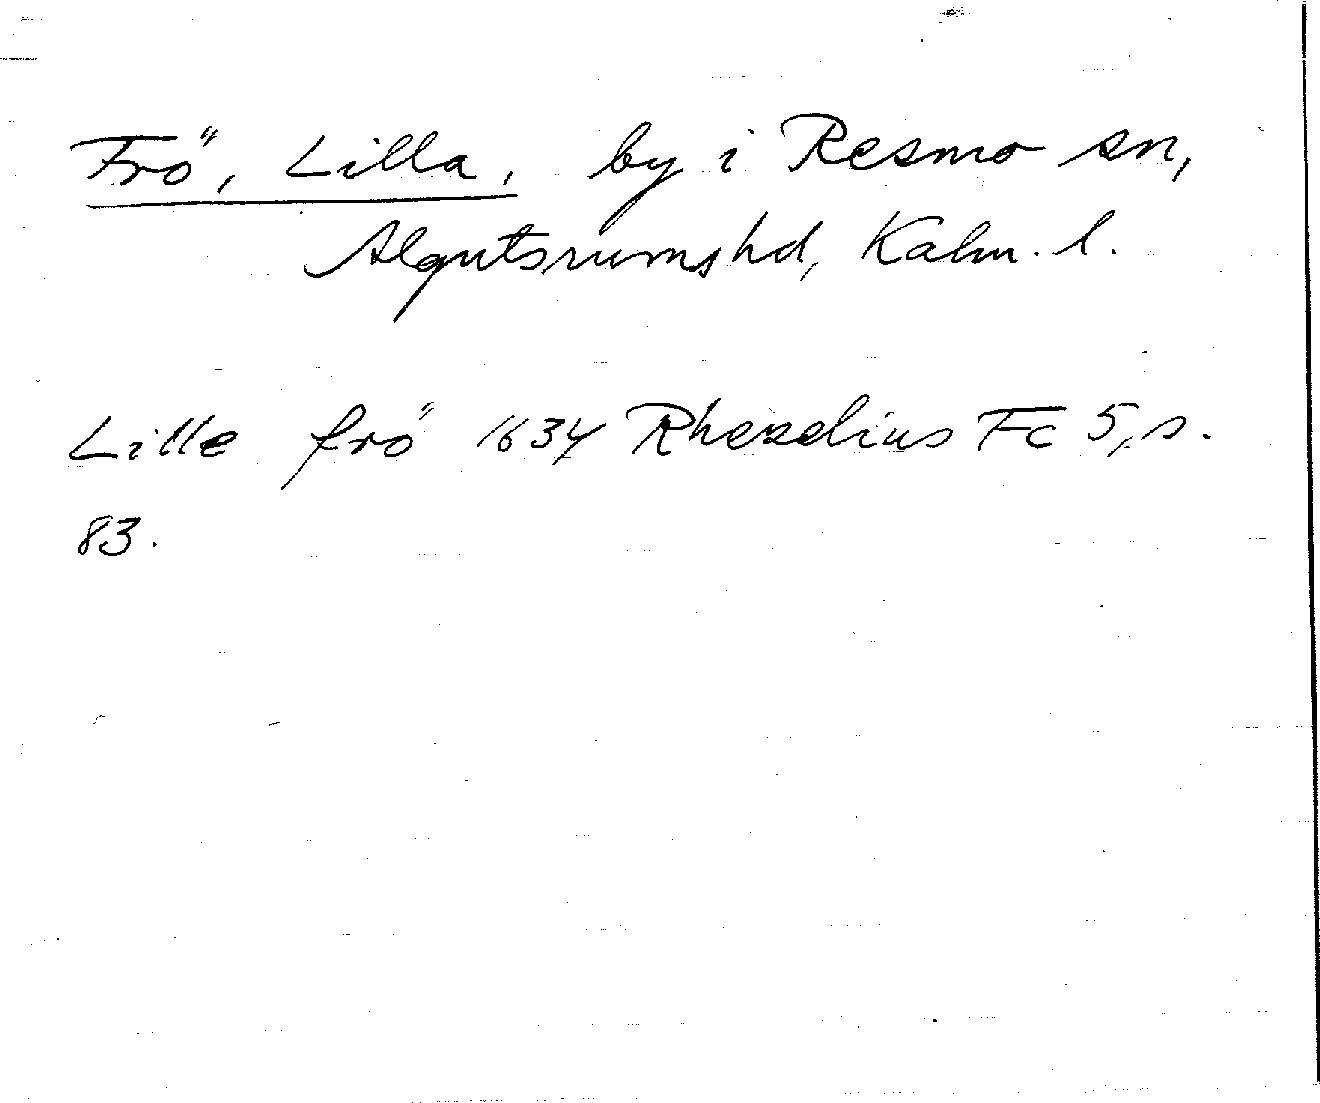 Frö, Lilla, by i Resmo sn,
Algutsrums hd, Kalm. l.
Lille frö 1634 Rhezelius Fc 5, s.
83.